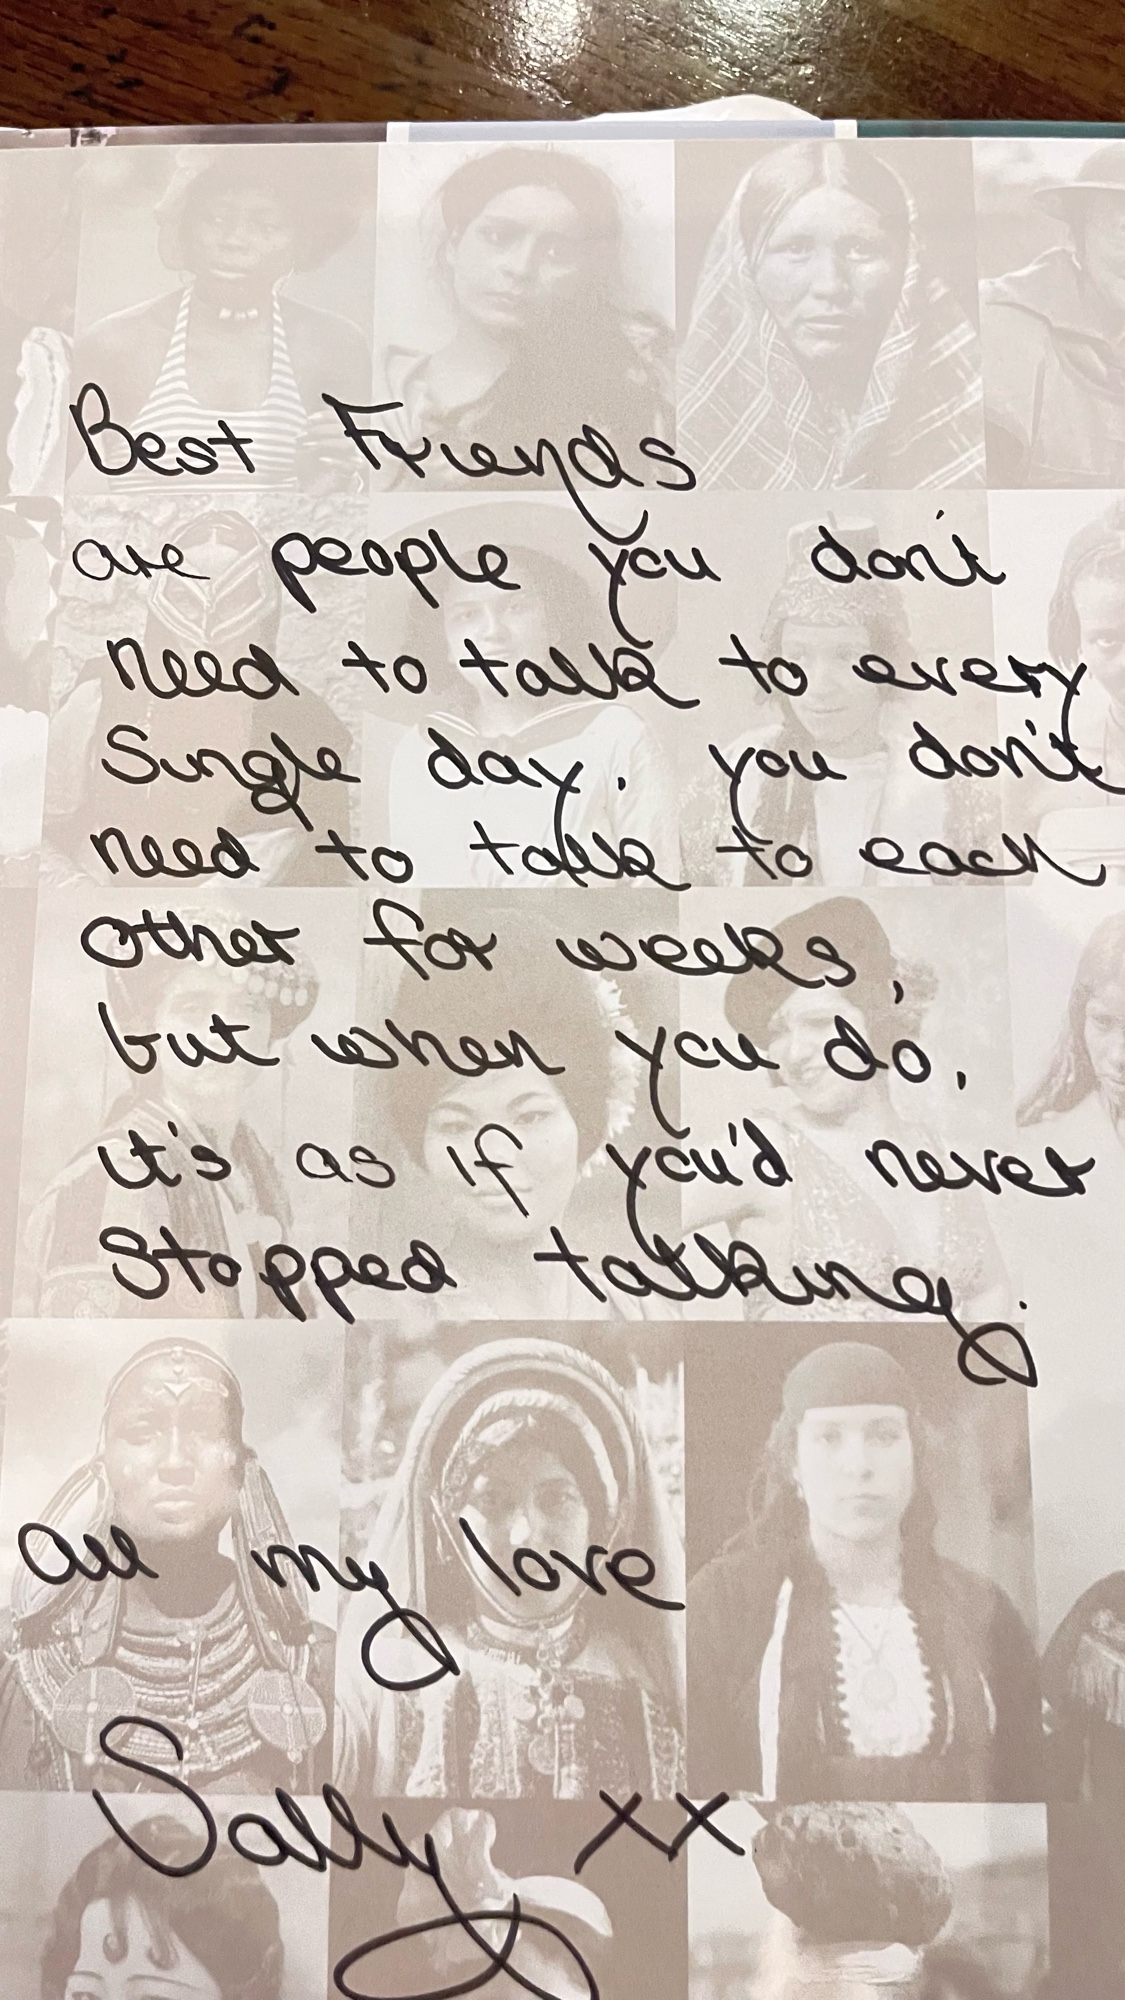 Best Friends
are people you don't
need to talk to every
Single day. you don't
need to talk to each
other for weeks,
but when you do,
it's as if you'd never
Stopped talking.
all my love
Sally xx